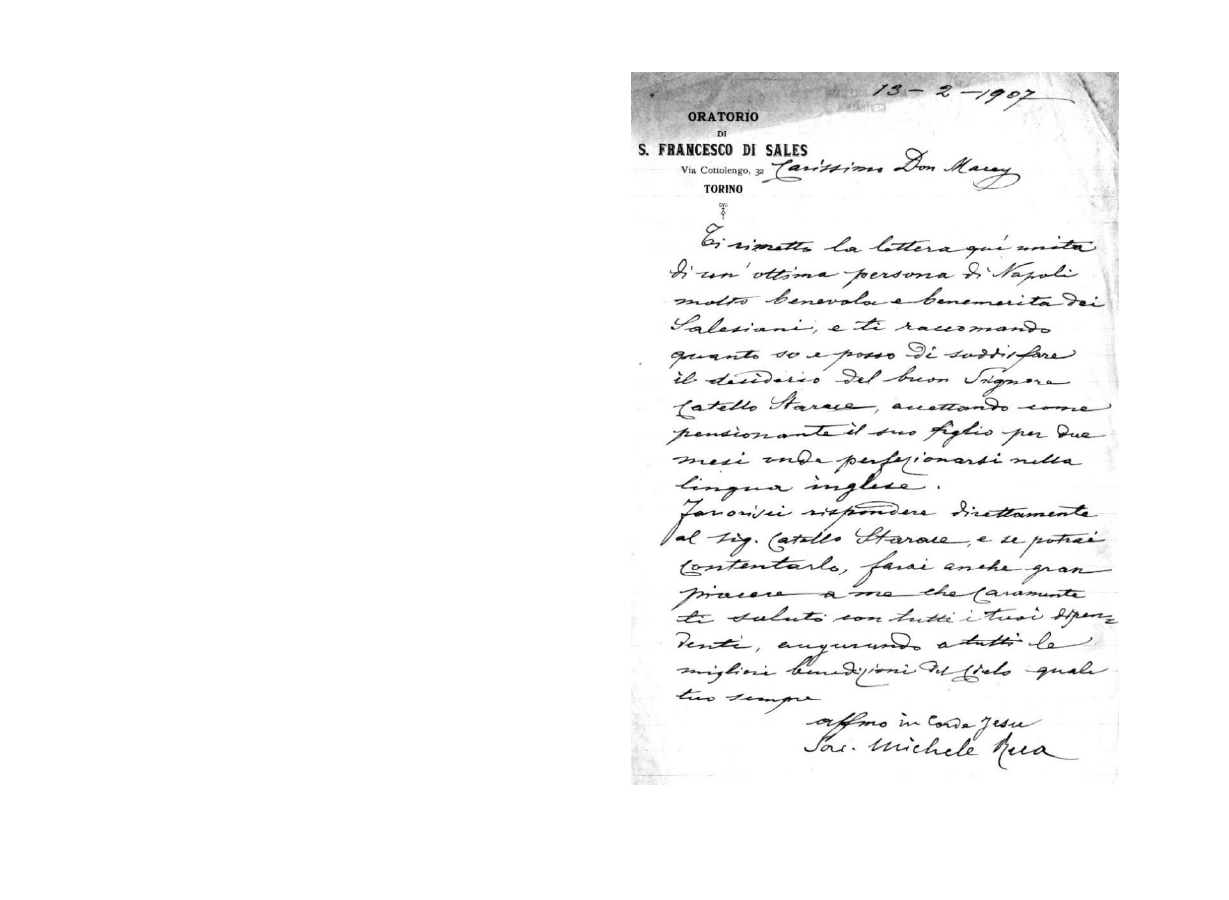 13-2-1907
ORATORIO
DI
S. FRANCESCO DI SALES
Via Cottolengo, 32
TORINO
Carissimo Don Macey
Ti rimetto la lettera quì unita
di un'ottima persona di Napoli
molto benevola e benemerita dei
Salesiani, e ti raccomando
quanto so e posso di soddisfare
il desiderio del buon Signore
Catello Starace, accettando come
pensionante il suo figlio per due
mesi onde perfezionarsi nella
lingua inglese.
Favorisci rispondere direttamente
al Sig. Catello Starace, e se potrai
contentarlo, farai anche gran
piacere a me che caramente
ti saluto con tutti i tuoi dipen=
denti, augurando a tutti le
migliori benedizioni del Cielo quale
tuo sempre
affmo in Corde Jesu
Sac. Michele Rua